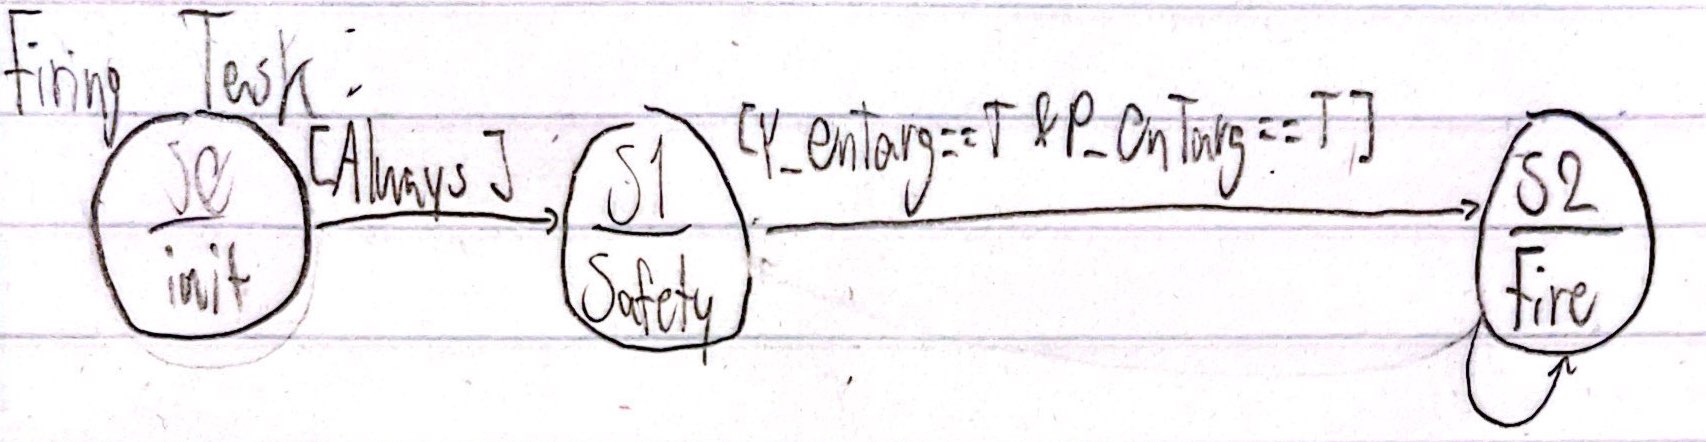 Firing Task:
S0
init
[Always]
S1
Safety
[Y_onTarg==T & P_OnTarg==T]
S2
Fire